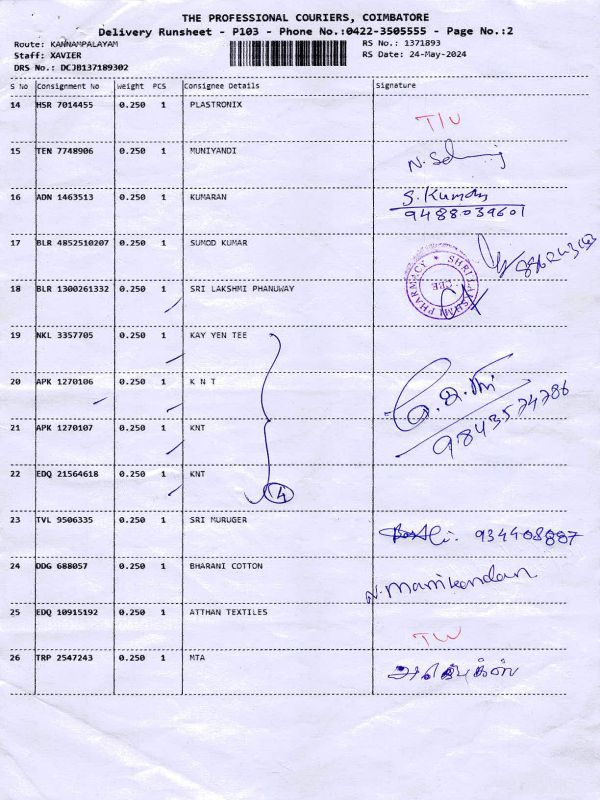 THE PROFESSIONAL COURIERS, COIMBATORE
Delivery Runsheet - P103 - Phone No.:0422-3505555 - Page No.:2
Route: KANNAMPALAYAM
RS No.: 1371893
Staff: XAVIER
RS Date: 24-May-2024
DRS No.: DCJB137189302
S No Consignment No Weight PCS Consignee Details Signature
14 HSR 7014455 0.250 1 PLASTRONIX
15 TEN 7748906 0.250 1 MUNIYANDI
16 ADN 1463513 0.250 1 KUMARAN S. Kumar
9488039601
17 BLR 4852510207 0.250 1 SUMOD KUMAR
18 BLR 1300261332 0.250 1 SRI LAKSHMI PHANUWAY
19 NKL 3357705 0.250 1 KAY YEN TEE
20 APK 1270106 0.250 1 K N T
21 APK 1270107 0.250 1 KNT 9843574786
22 EDQ 21564618 0.250 1 KNT
4
23 TVL 9506335 0.250 1 SRI MURUGER 934408887
24 DDG 688057 0.250 1 BHARANI COTTON N. Manikandan
25 EDQ 10915192 0.250 1 ATTHAN TEXTILES
26 TRP 2547243 0.250 1 MTA